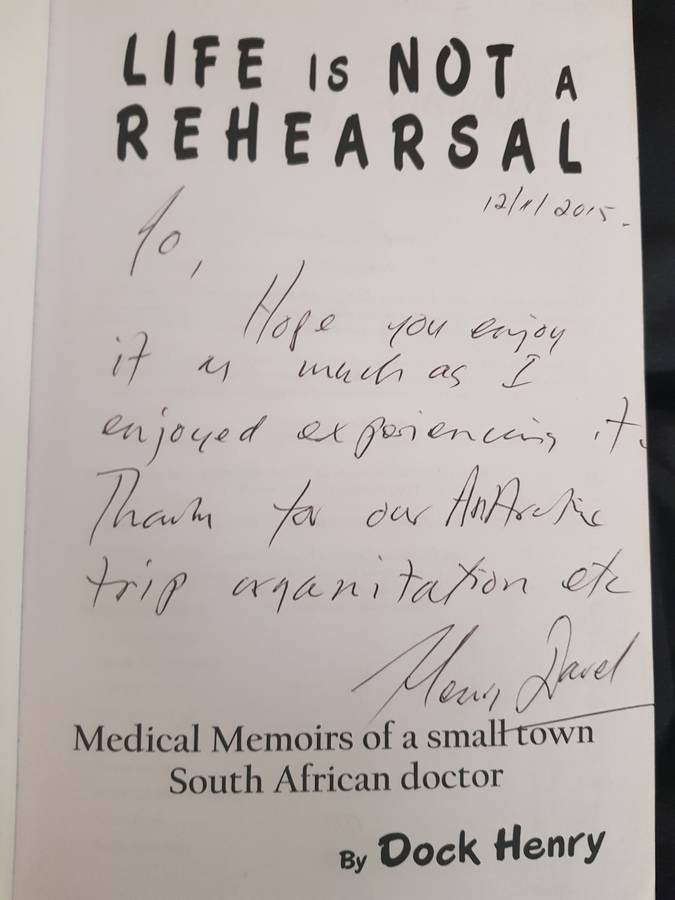 LIFE IS NOT A
REHEARSAL
12/11/2015.
Yo,
Hope you enjoy
it as much as I
enjoyed experiencing it.
Thanks for our AntArctic
trip organitation etc
Henry Davel
Medical Memoirs of a small town
South African doctor
By Dock Henry